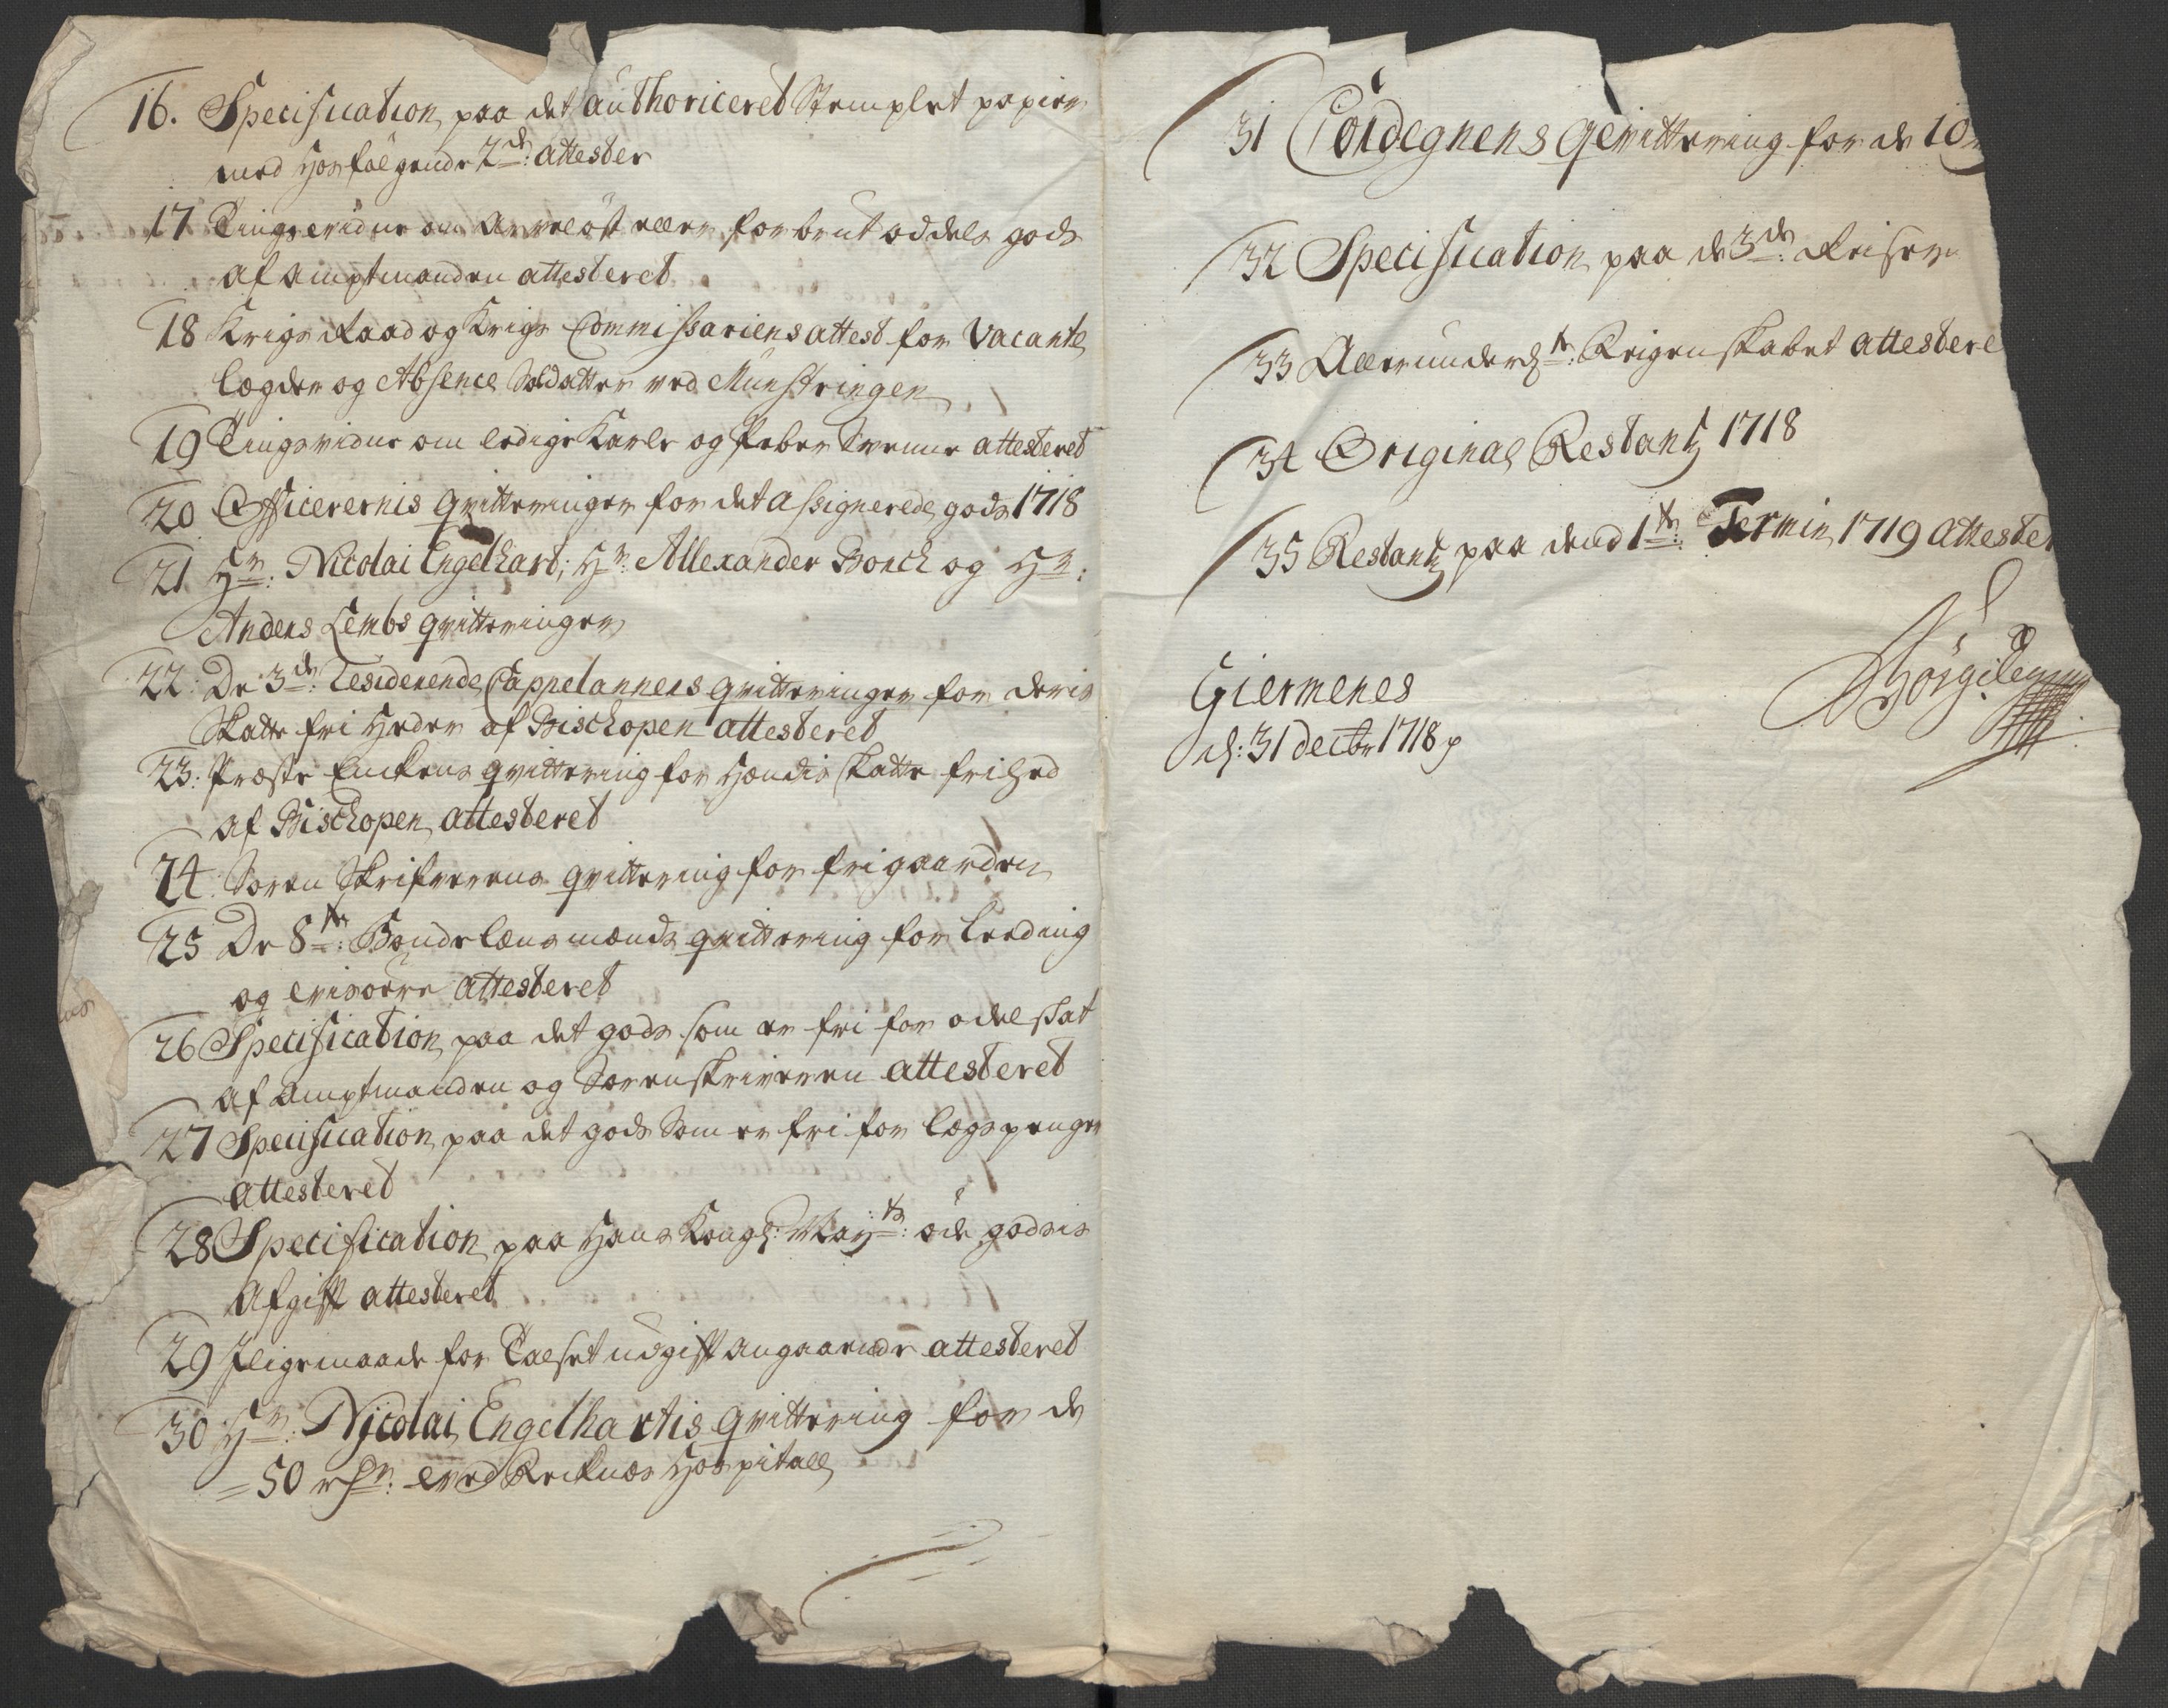 16. Specification paa det authoriceret Stemplet papier
med Hosfølgende 2de: attester
17 Tingsvidne om Arveløst eller forbrut oddels gods
af amptmanden attesteret
18 Krigs Raad og Krigs Commissariens attest for Vacante
Lægder og Absence Soldatter ved Munstringen
19 Tingsvidne om ledige Karle og Peber Svenne attesteret
20 Officerernis qvitteringer for det assignerede gods 1718
21 Hr: Nicolai Engelhart, Hr: Allexander Borch og Hr:
Anders Lembs qvitteringer
22: De 3de: Residerende Cappelanners qvitteringer for deris
Skatte fri Heder af Bischopen attesteret
23: Præste Enkens qvittering for Hændis Skatte frihed
af Bischopen attesteret
24: Soren Skrifverens qvittering for frigaarden
25 De 8te: Bonde lænsmænds qvittering for Leeding
og attesteret
26 Specification paa det gods som er fri for odelskat
af amptmanden og Sorenskriveren attesteret
27 Specification paa det gods Som er fri for Lægspenger
attesteret
28 Specification paa Hans Kongl: Mayts: øde godsis
Afgift attesteret
29 Iligemaade for Tolset udgift angaaende attesteret
30 Hr: Nicolai Engelhartis qvittering for de
50 rdr: ved Reknes Hospitall
31 Cordegnens qevittering for de 10
32 Specification paa de 3de: Reiser
33 Allerunderdte: Reigenskabet attestere
34 Original Restantz 1718
35 Restantz paa dend 1te: Termin 1719 atteste
Giermenes
d: 31 decbr 1718